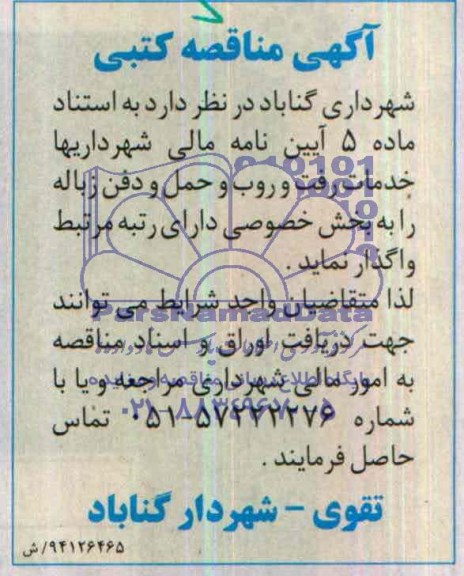 آگهی مناقصه کتبی
شهرداری گناباد در نظر دارد به استناد
ماده ۵ آیین نامه مالی شهرداریها
خدمات رفت و روب و حمل و دفن زباله
را به بخش خصوصی دارای رتبه مرتبط
واگذار نماید .
لذا متقاضیان واجد شرایط می توانند
جهت دریافت اوراق و اسناد مناقصه
به امور مالی شهرداری مراجعه و یا با
شماره ۵۷۲۲۲۲۷۶-۰۵۱ تماس
حاصل فرمایند .
تقوی - شهردار گناباد
۹۴۱۲۶۴۶۵/ش
ParsNamadData